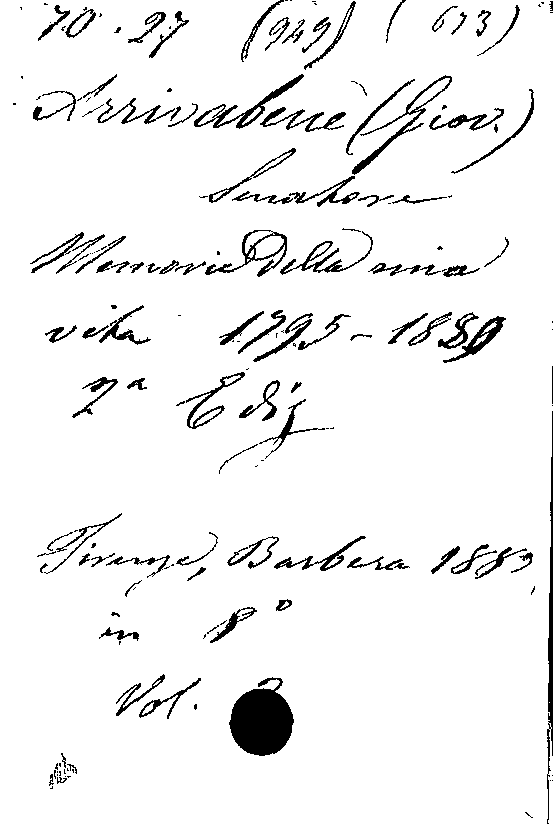 70.27 (949) (673)
Arrivabene (Giov.)
Senatore
Memorie Della mia
vita 1795-1880
2ª Ediz
Firenze, Barbera 1883
in 8º
Vol.